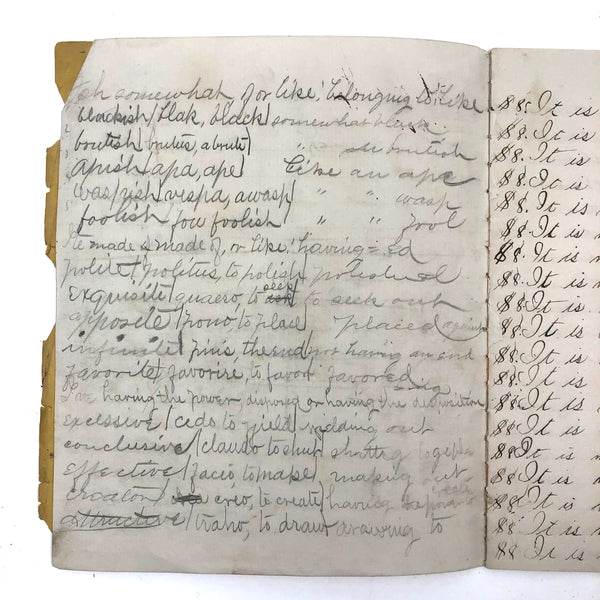 Ish somewhat of or like, belonging to like
blackish (blak, black) somewhat black
brutish (brutus, a brute) " " brutish
apish (apa, ape) like an ape
waspish (vespa, a wasp) " " wasp
foolish fou foolish " " fool
Ite made s made of, or like, having = ed
polite (politus, to polish polished
exquisite (quaero, to seek to seek out
apposite (pono, to place) placed against
infinite (finis, the end not having an end
favorite favorire, to favor favored
Ive having the power, disposed or having the
excessive (cedo to yield yielding out
conclusive (claudo to shut shutting together
effective (facio, to make, making out
creo, to create, having
attractive (traho, to draw drawing to
$8. It is
$8. It is
$8. It is
$8. It is
$8. It is n
$8. It is n
$8. It is n
$8. It is n
$8. It is n
$8. It is n
$8. It is n
$8. It is
$8. It is
$8. It is n
$8. It is n
$8. It is n
$8. It is n
$8. It is n